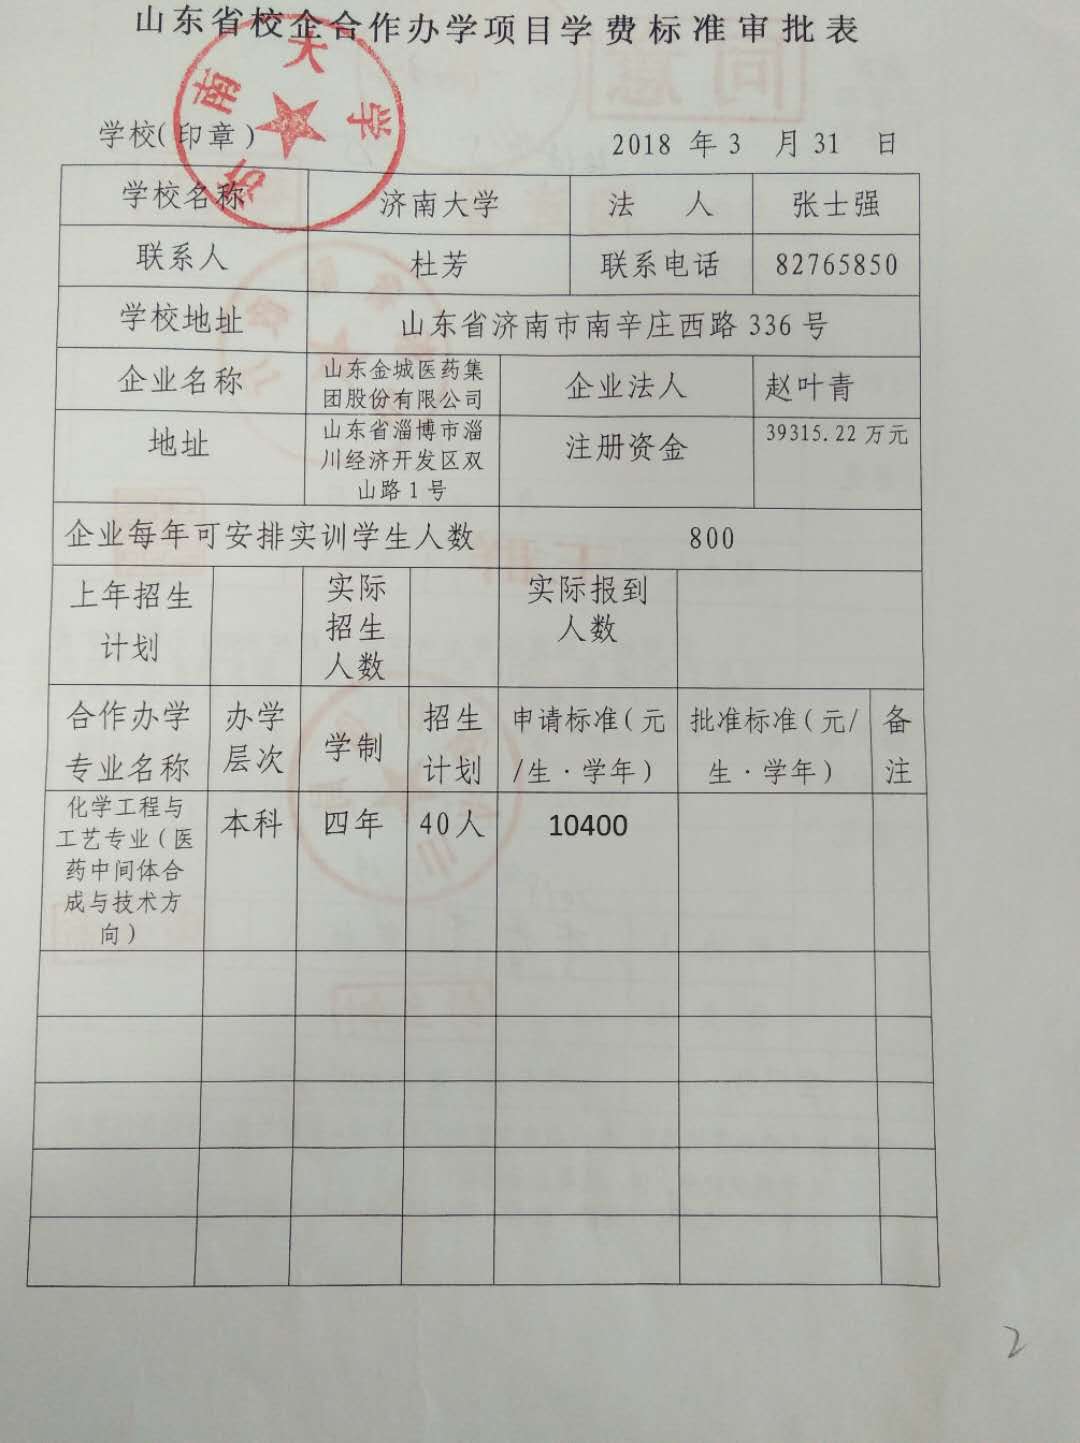 山东省校企合作办学项目学费标准审批表
济南大学
学校(印章) 2018 年3 月31 日
学校名称 济南大学 法 人 张士强
联系人 杜芳 联系电话 82765850
学校地址 山东省济南市南辛庄西路 336 号
企业名称 山东金城医药集
团股份有限公司 企业法人 赵叶青
地址 山东省淄博市淄
川经济开发区双
山路1号 注册资金 39315.22 万元
企业每年可安排实训学生人数 800
上年招生
计划 实际
招生
人数 实际报到
人数
合作办学
专业名称 办学
层次 学制 招生
计划 申请标准(元
/生·学年) 批准标准(元/
生·学年) 备
注
化学工程与
工艺专业(医
药中间体合
成与技术方
向) 本科 四年 40人 10400
2